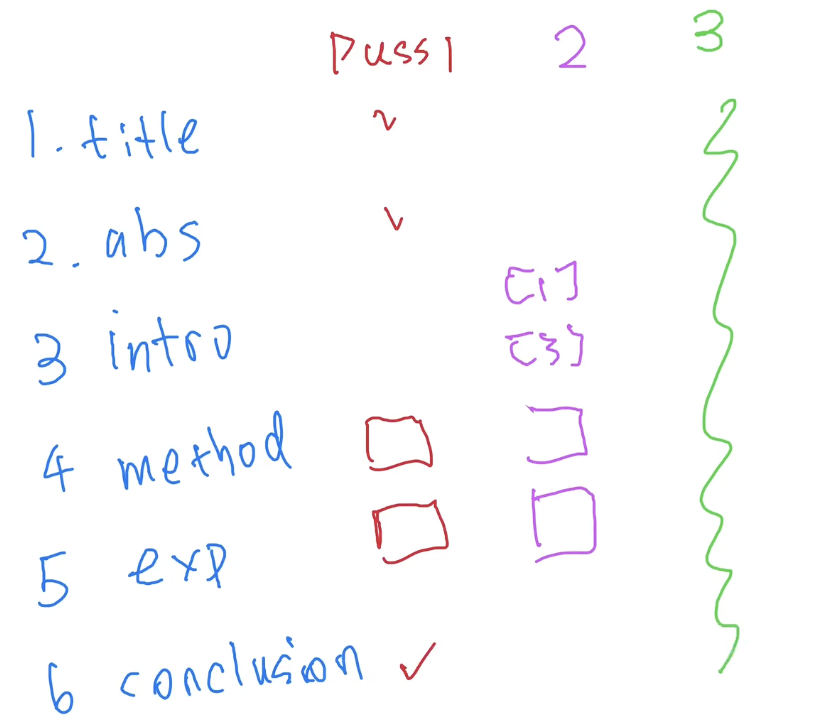 pass 1 2 3
1. title
2. abs
[1]
3 intro [3]
4 method
5 exp
6 conclusion